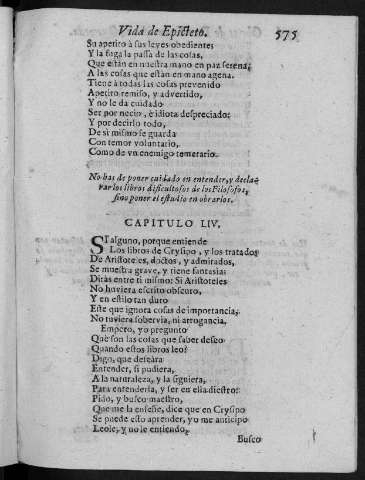 Vida de Epicteto. 575
Su apetito à sus leyes obedientes
Y la fuga la passa de las cosas,
Que estàn en nuestra mano en paz serena,
A las cosas que estàn en mano agena.
Tiene à todas las cosas prevenido
Apetito remiso, y advertido,
Y no le da cuidado
Ser por necio, è idiota despreciado:
Y por decirlo todo,
De si mismo se guarda
Con temor voluntario,
Como de vn enemigo temerario.
No has de poner cuidado en entender, y decla-
rar los libros dificultosos de los Filosofos,
sino poner el estudio en obrarlos.
CAPITULO LIV.
SI alguno, porque entiende
Los libros de Crysipo, y los tratados
De Aristoteles, doctos, y admirados,
Se muestra grave, y tiene fantasias
Diràs entre ti mismo: Si Aristoteles
No huviera escrito obscuro,
Y en estilo tan duro
Este que ignora cosas de importancia,
No tuviera sobervia, ni arrogancia,
Empero, yo pregunto
Què son las cosas que saber deseo
Quando estos libros leo?
Digo, que deseàra
Entender, si pudiera,
A la naturaleza, y la siguiera,
Para entenderla, y ser en ella diestro:
Pido, y busco maestro,
Que me la enseñe, dice que en Crysipo
Se puede esto aprender, yo me anticipo
Leole, y no le entiendo,
Busco